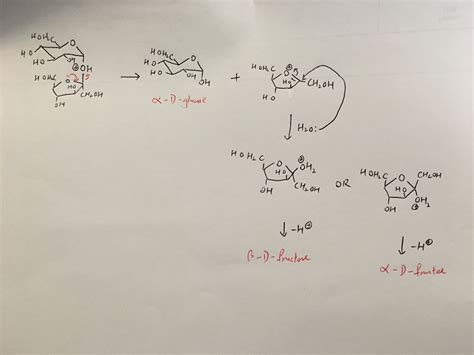 HOH₂C O
HO
HO OH
⊕OH
HOH₂C O
HO CH₂OH
OH
HOH₂C O
HO
HO OH OH
α-D-glucose
+
HOH₂C ⊕O
HO CH₂OH
HO
H₂O:
HOH₂C O ⊕OH₂
HO CH₂OH
OH
OR
HOH₂C O CH₂OH
HO OH₂
OH ⊕
-H⊕
-H⊕
β-D-fructose
α-D-fructose